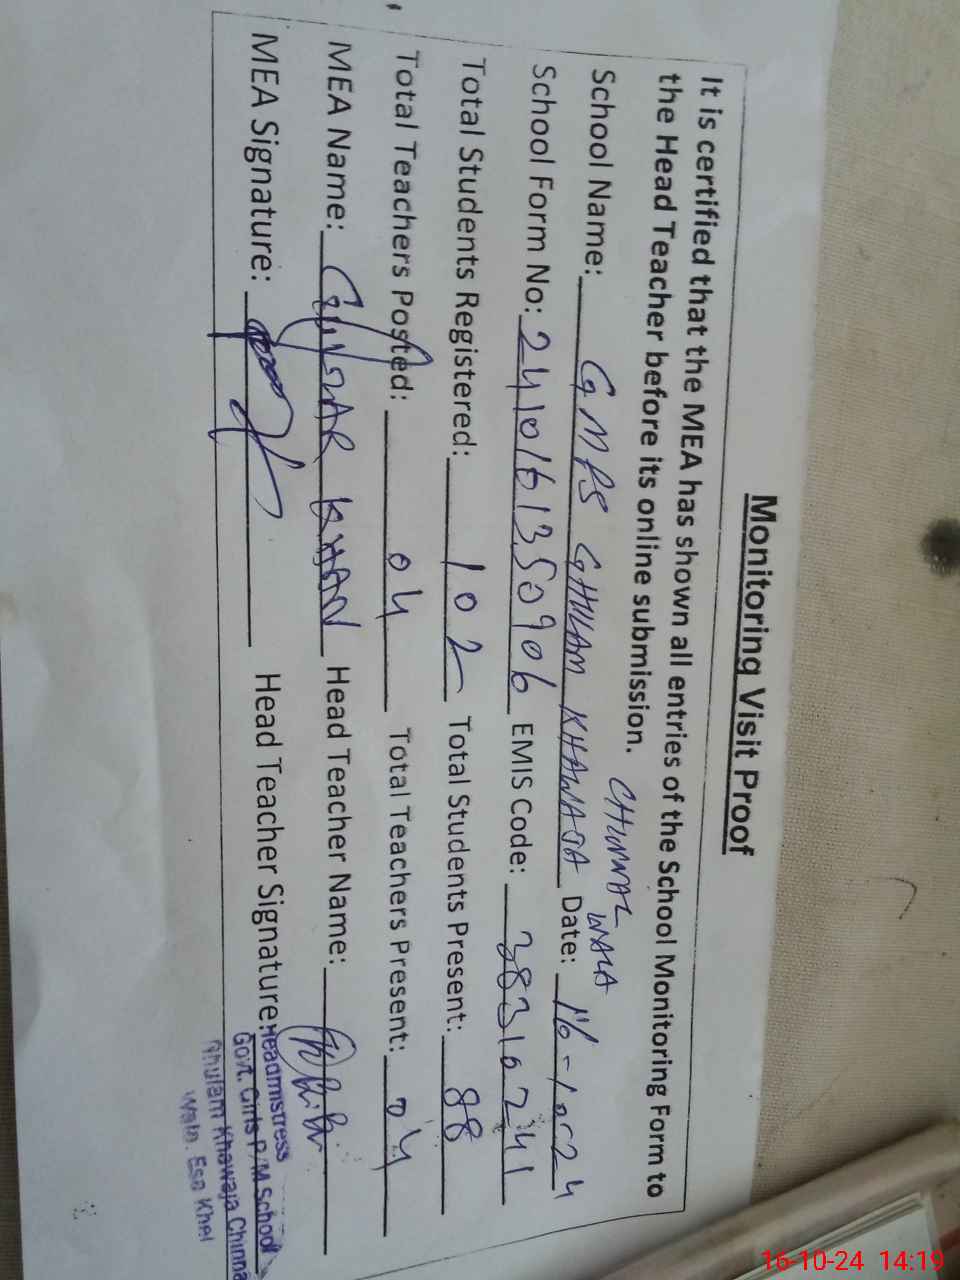 Monitoring Visit Proof
It is certified that the MEA has shown all entries of the School Monitoring Form to
the Head Teacher before its online submission.
School Name: GMPS GHULAM KHAWAJA WALA Date: 16-10-24
School Form No: 2410161350906 EMIS Code: 38310241
Total Students Registered: 102 Total Students Present: 88
Total Teachers Posted: 04 Total Teachers Present: 04
MEA Name: KHAN Head Teacher Name:
MEA Signature: Head Teacher Signature:
Headmistress
Govt. Girls P/M School
Ghulam Khawaja Chinna
Wala. Esa Khel
16-10-24 14:19